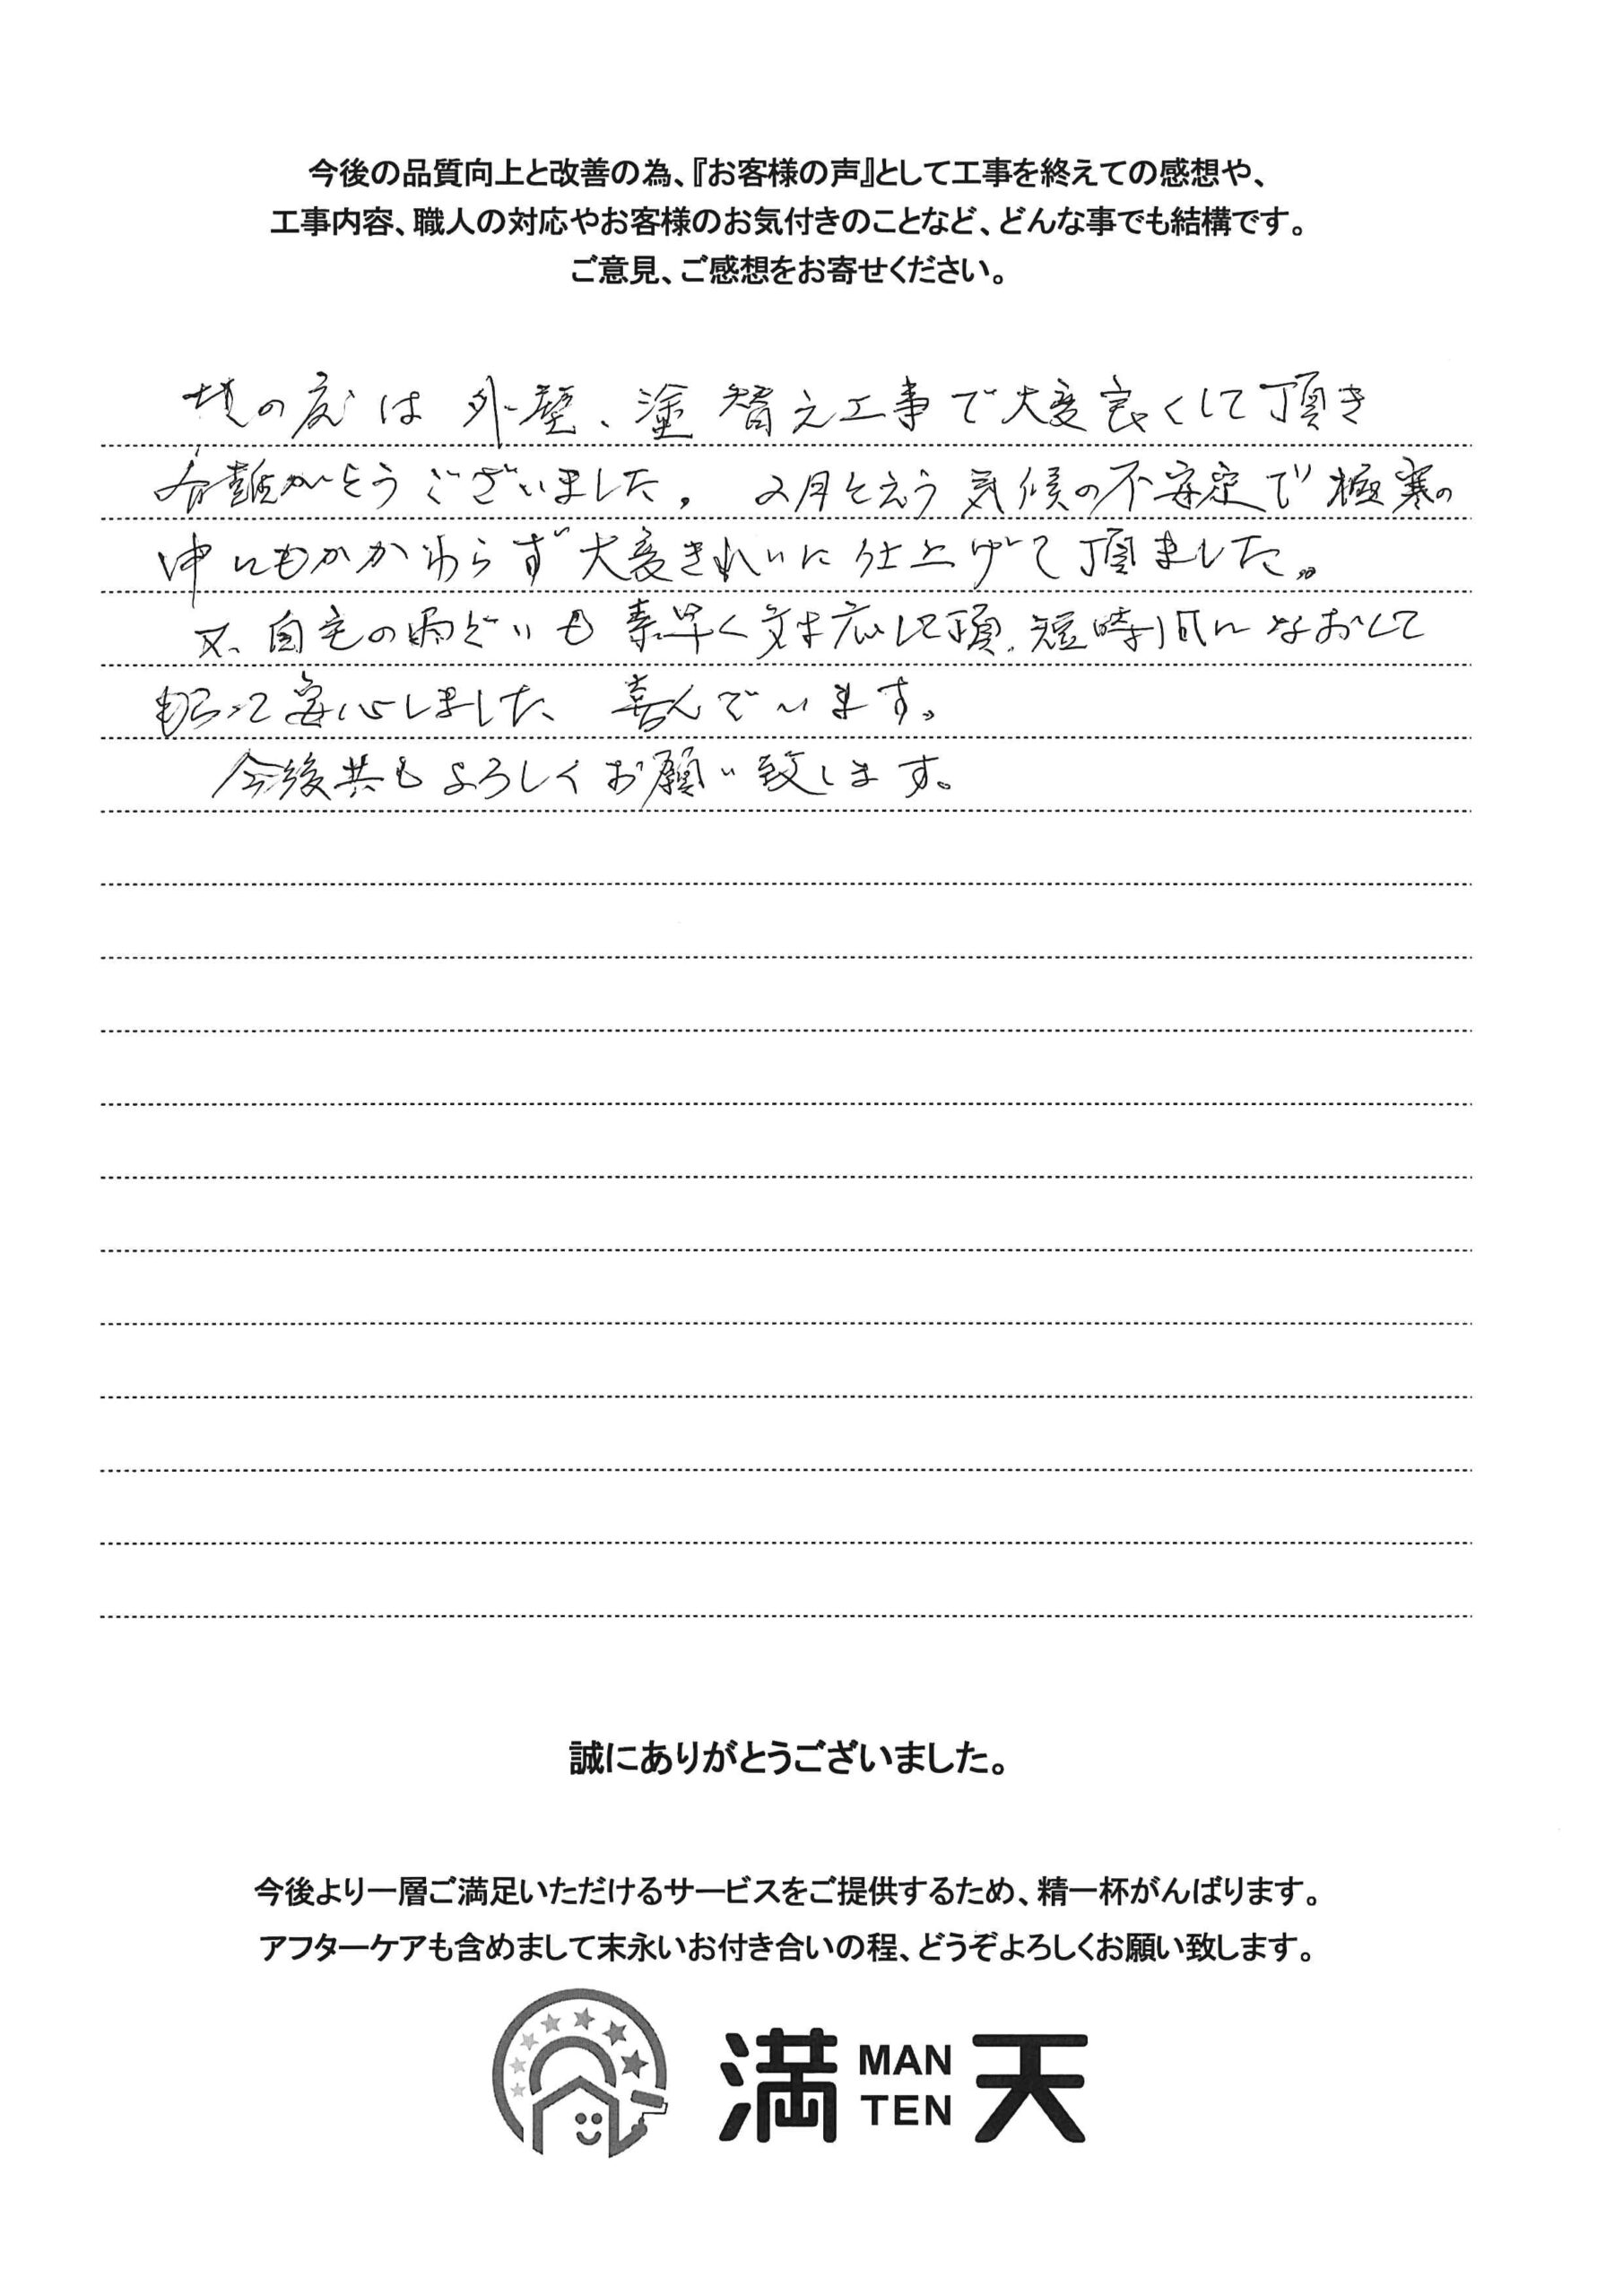 今後の品質向上と改善の為、『お客様の声』として工事を終えての感想や、
工事内容、職人の対応やお客様のお気付きのことなど、どんな事でも結構です。
ご意見、ご感想をお寄せください。
の度は 外壁、塗替え工事で大変良くして頂き
有難がとうございました。 2月と云う気候の不安定で極寒の
中にもかかわらず大変きれいに仕上げて頂ました。
又、自宅の雨どいも素早く対応して頂、短時間になおして
もらって安心しました、喜んでいます。
今後共もよろしくお願い致します。
誠にありがとうございました。
今後より一層ご満足いただけるサービスをご提供するため、精一杯がんばります。
アフターケアも含めまして末永いお付き合いの程、どうぞよろしくお願い致します。
満 MAN TEN 天